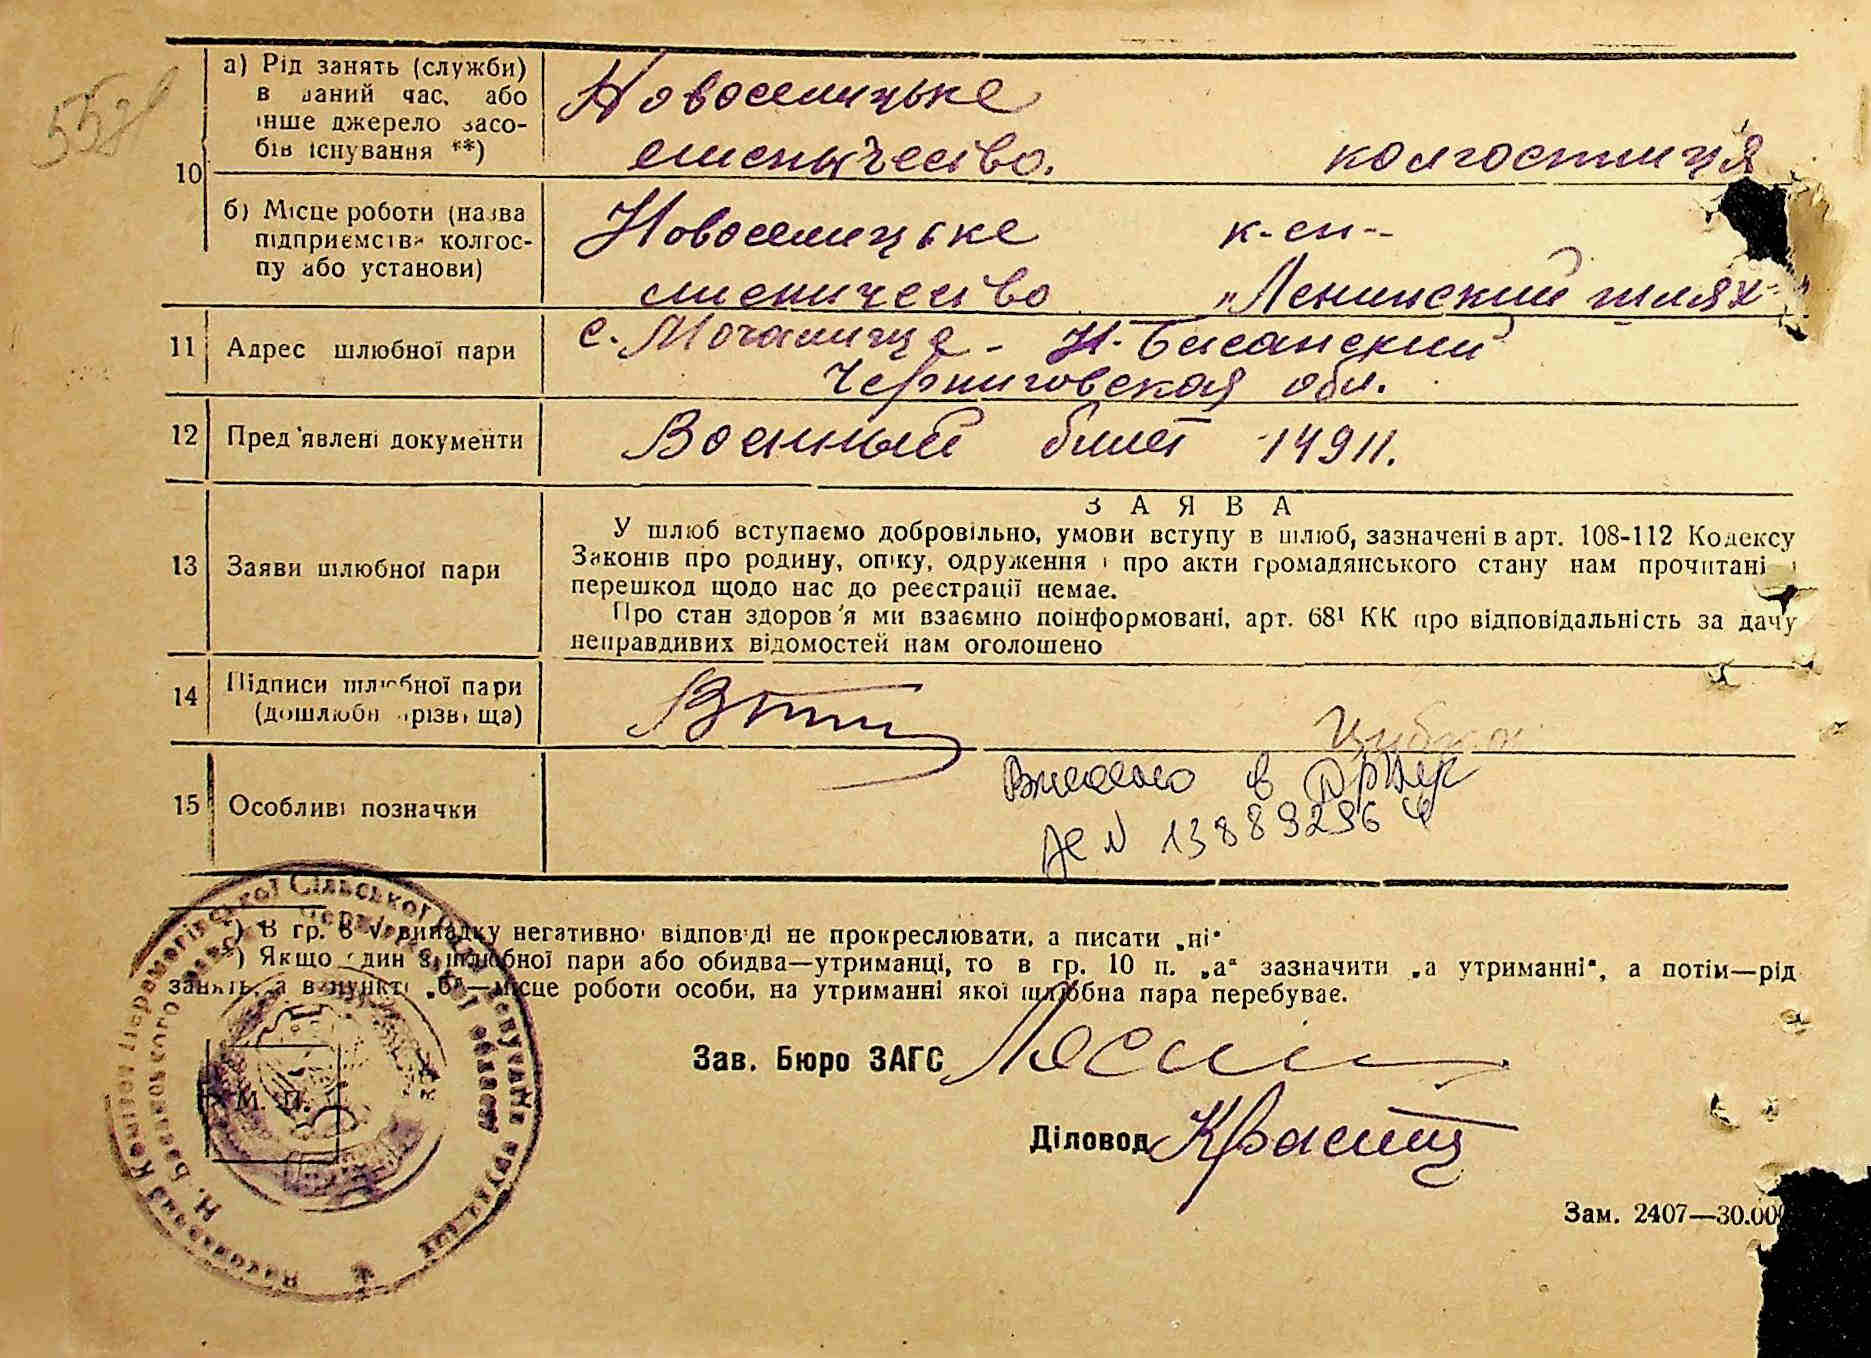 а) Рід занять (служби)
в даний час, або
інше джерело засо-
бів існування **)
Новоселицьке
колгостниця
10
б) Місце роботи (назва
підприємств, колгос-
пу або установи)
Новоселицьке к-сп--
лисничество "Ленинский шлях"
11 Адрес шлюбної пари
с. Мочалище - Н-Басанский
Черниговская обл.
12 Пред'явлені документи
Военный билет 14911.
13 Заяви шлюбної пари
ЗАЯВА
У шлюб вступаємо добровільно, умови вступу в шлюб, зазначені в арт. 108-112 Кодексу
Законів про родину, опіку, одруження і про акти громадянського стану нам прочитані і
перешкод щодо нас до реєстрації немає.
Про стан здоров'я ми взаємно поінформовані, арт. 68¹ КК про відповідальність за дачу
неправдивих відомостей нам оголошено
14 Підписи шлюбної пари
(дошлюбн прізвища)
15 Особливі позначки
Внесено в ДРАЦС
АС N 13889296
*) В гр. 8 у випадку негативної відповіді не прокреслювати, а писати „ні"
**) Якщо один з шлюбної пари або обидва—утриманці, то в гр. 10 п. „а" зазначити „а утриманні", а потім—рід
занять, а в пункті „б"—місце роботи особи, на утриманні якої шлюбна пара перебуває.
Зав. Бюро ЗАГС
М. П.
Діловод
Зам. 2407—30.00